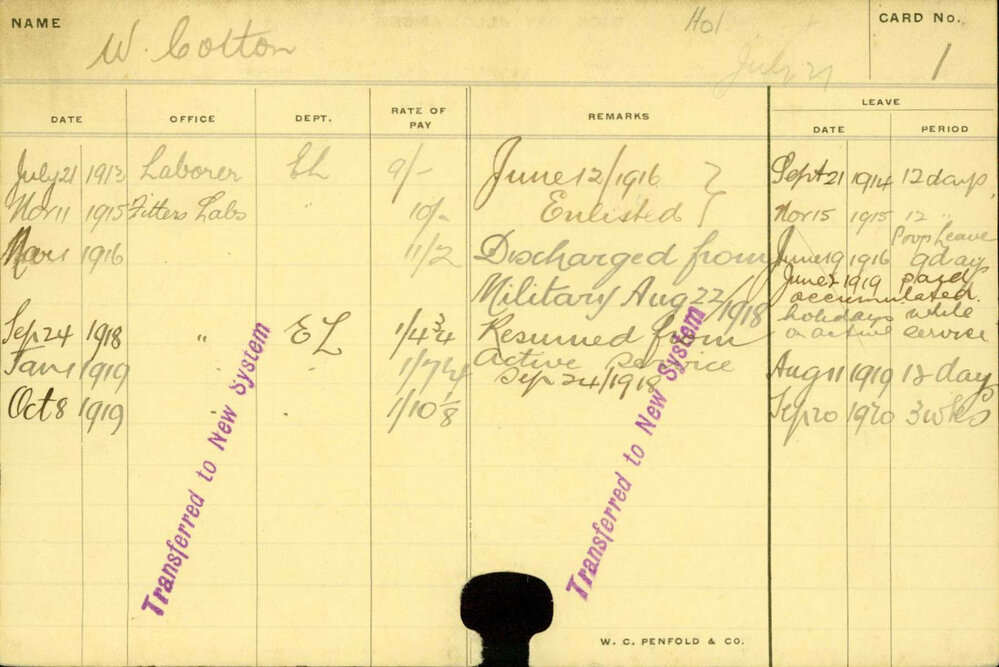 NAME W. Cotton Hol. July 21 CARD No. 1
DATE OFFICE DEPT. RATE OF PAY REMARKS LEAVE
DATE PERIOD
July 21 1913 Laborer EL 9/- June 12/1916 Sept 21 1914 12 days
Nov 11 1915 Fitters Labs " 10/- Enlisted Nov 15 1915 12 "
Prop Leave
Mar 1 1916 11/2 Discharged from June 19 1916 9 days
June 2 1919 paid
Military Aug 22/1918 accumulated
holidays while
Sep 24 1918 " EL 1/4¾ Resumed from on active service
Jan 1 1919 1/7¼ Active Service Aug 11 1919 18 days
Sep 24/1918
Oct 8 1919 1/10⅛ Sep 20 1920 3 wks
Transferred to New System
Transferred to New System
W. C. PENFOLD & CO.